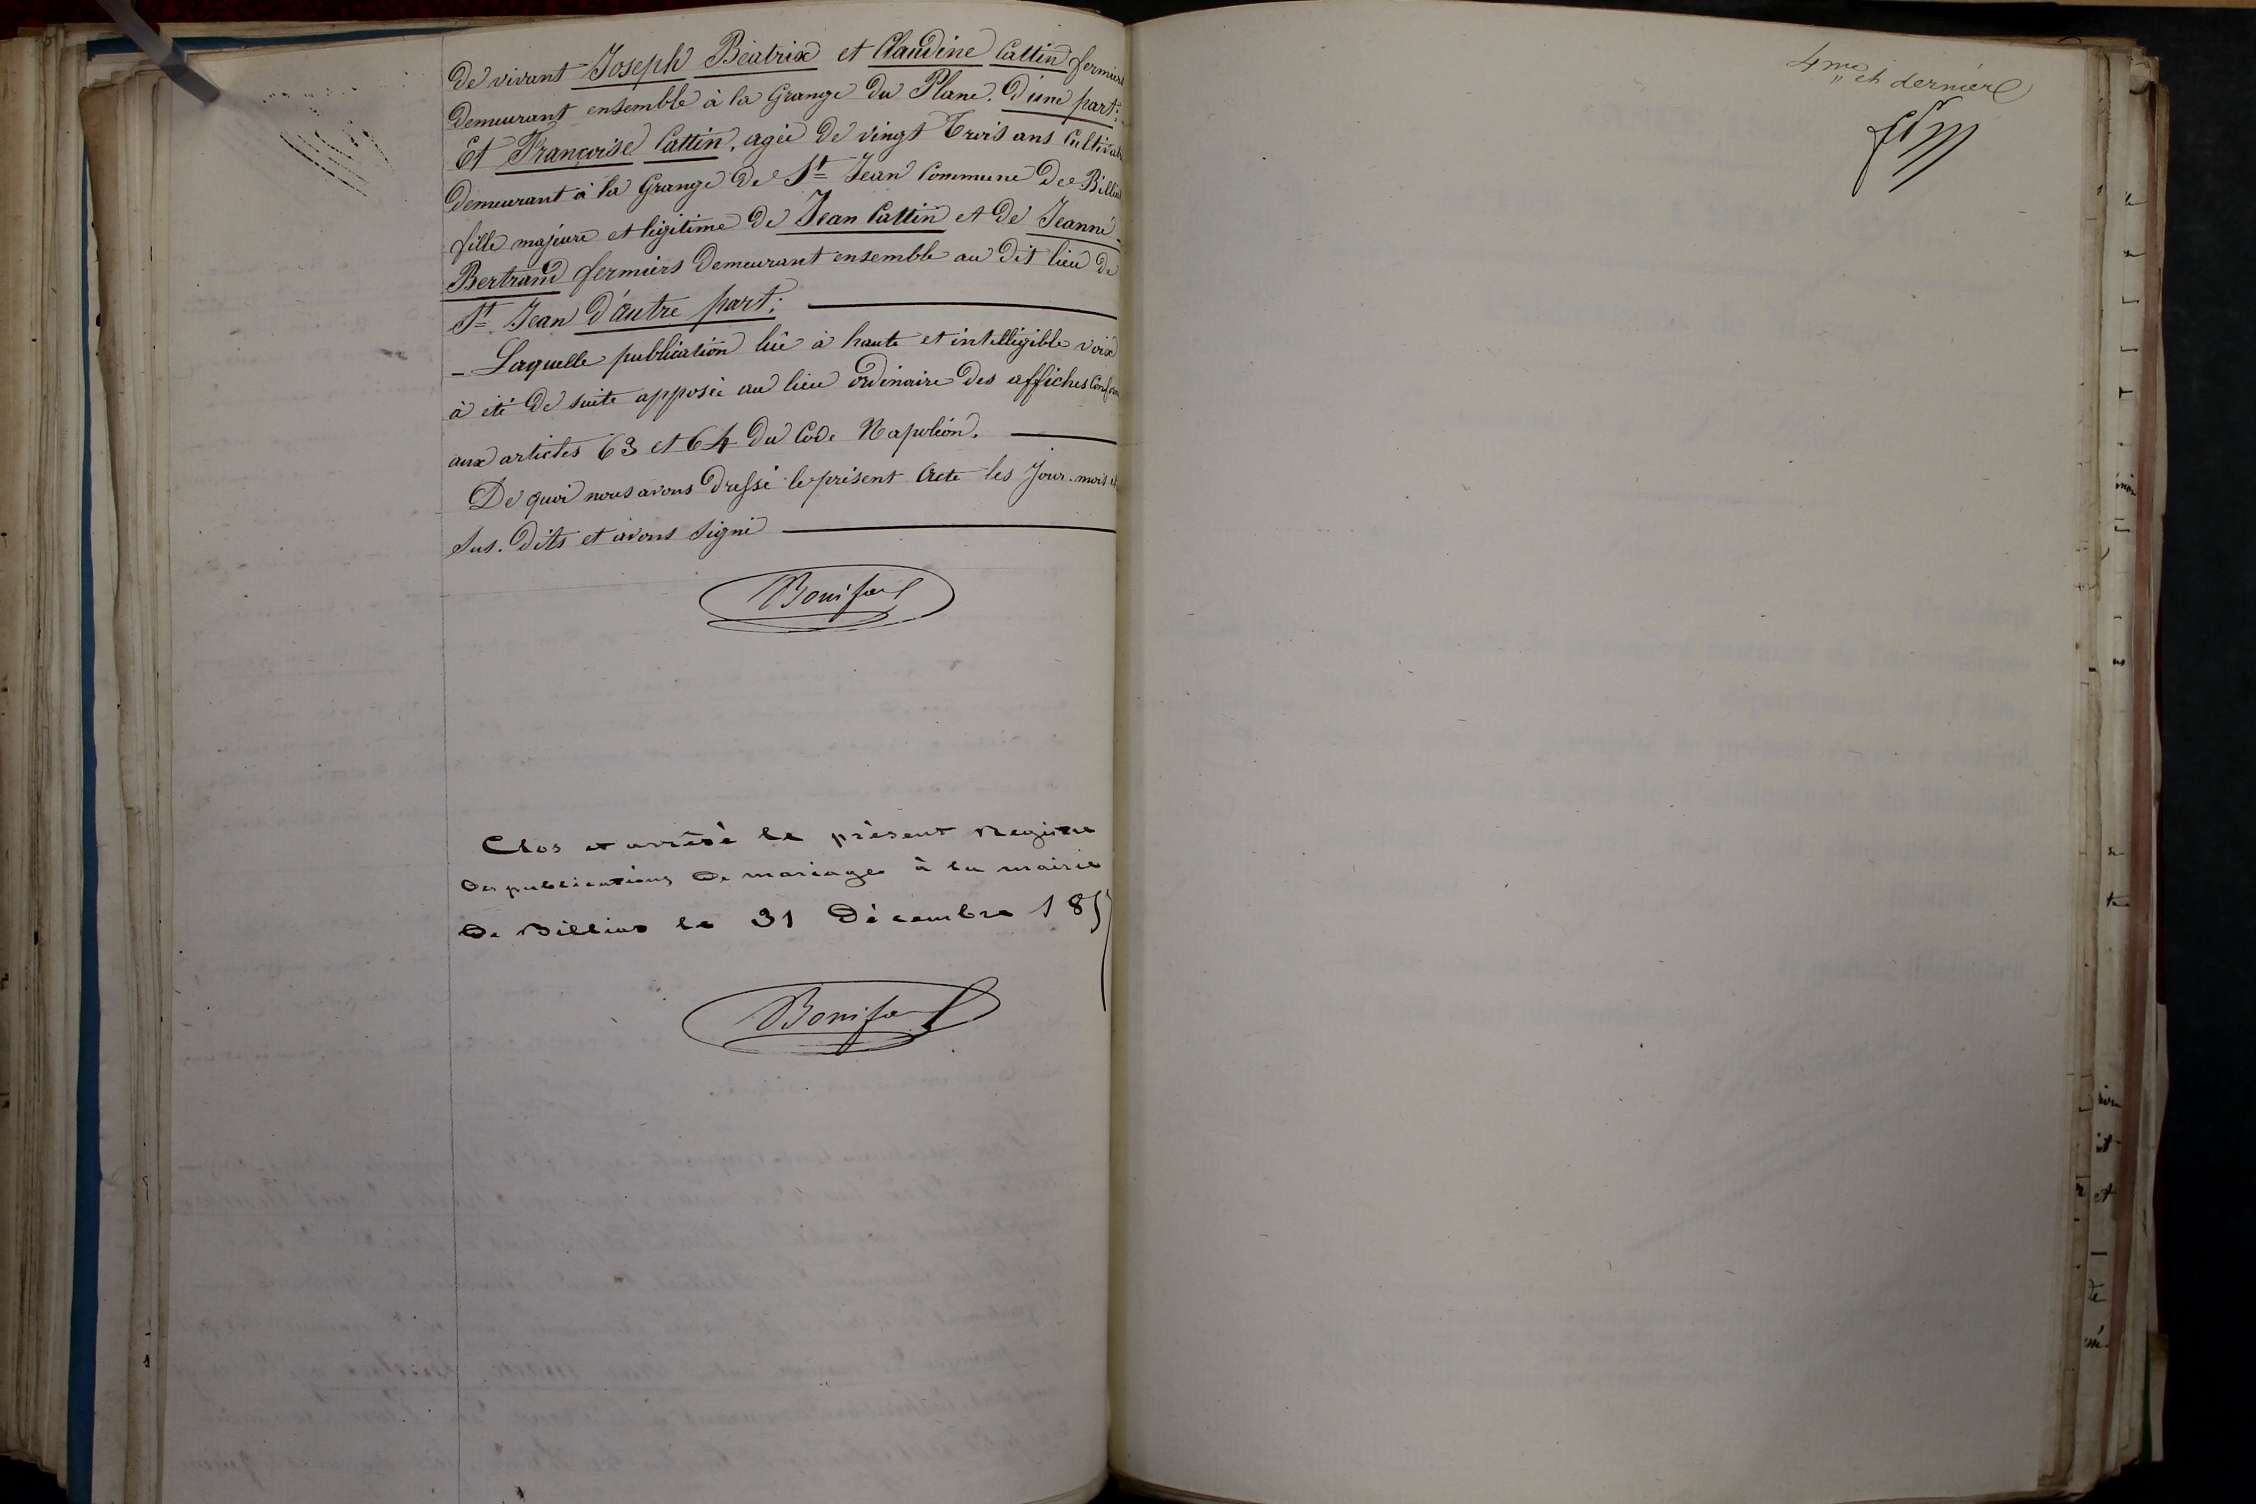 de vivant Joseph Béatrix et Claudine Cattin fermiers
demeurant ensemble à la Grange du Plane. d'une part:
Et Françoise Cattin, agée de vingt Trois ans Cultivat
demeurant à la Grange de St Jean Commune de Billia
fille majeure et légitime de Jean Cattin et de Jeanne
Bertrand fermiers demeurant ensemble au dit lieu de
St Jean d'autre part:
- Laquelle publication lue à haute et intelligible voix
à été de suite apposée au lieu ordinaire des affiches Conform
aux articles 63 et 64 du Code Napoléon.
De quoi nous avons dressé le présent Acte les Jour. mois et
sus. dits et avons signé
Bonifa
Clos et arrêté le présent Registre
des publications de mariage à la mairie
de Billias le 31 Décembre 185
Bonifa
4me et dernière